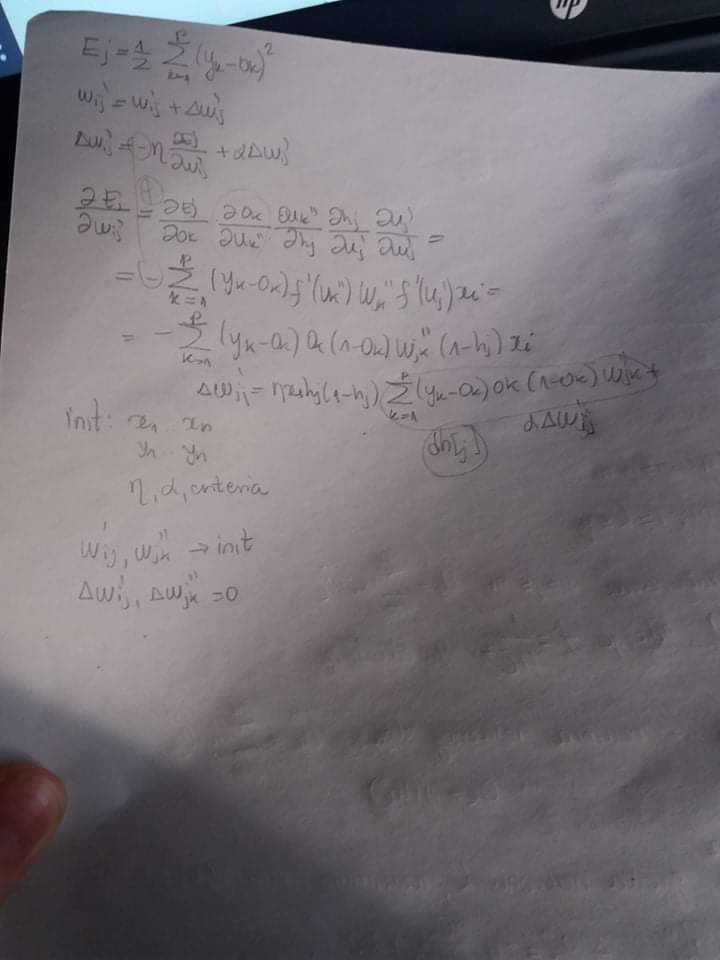 hp
Ej = 1/2 Σ_{k=1}^{p} (yk - Ok)²
wij' = wij' + Δwij'
Δwij' = -η ∂Ej/∂wij' + αΔwij'
∂Ej/∂wij' = ∂Ej/∂Ok ∂Ok/∂uk'' ∂uk''/∂hj ∂hj/∂uj' ∂uj'/∂wij' =
= - Σ_{k=1}^{p} (yk - Ok) f'(uk'') wjk'' f'(uj') xi =
= - Σ_{k=1}^{p} (yk - Ok) Ok (1 - Ok) wjk'' (1 - hj) xi
Δwij' = ηxihj(1-hj) Σ_{k=1}^{p} (yk - Ok) Ok (1 - Ok) wjk'' +
αΔwij'
dh[j]
init: x1 .. xn
y1 .. yn
η, α, criteria
wij', wjk'' → init
Δwij', Δwjk'' = 0